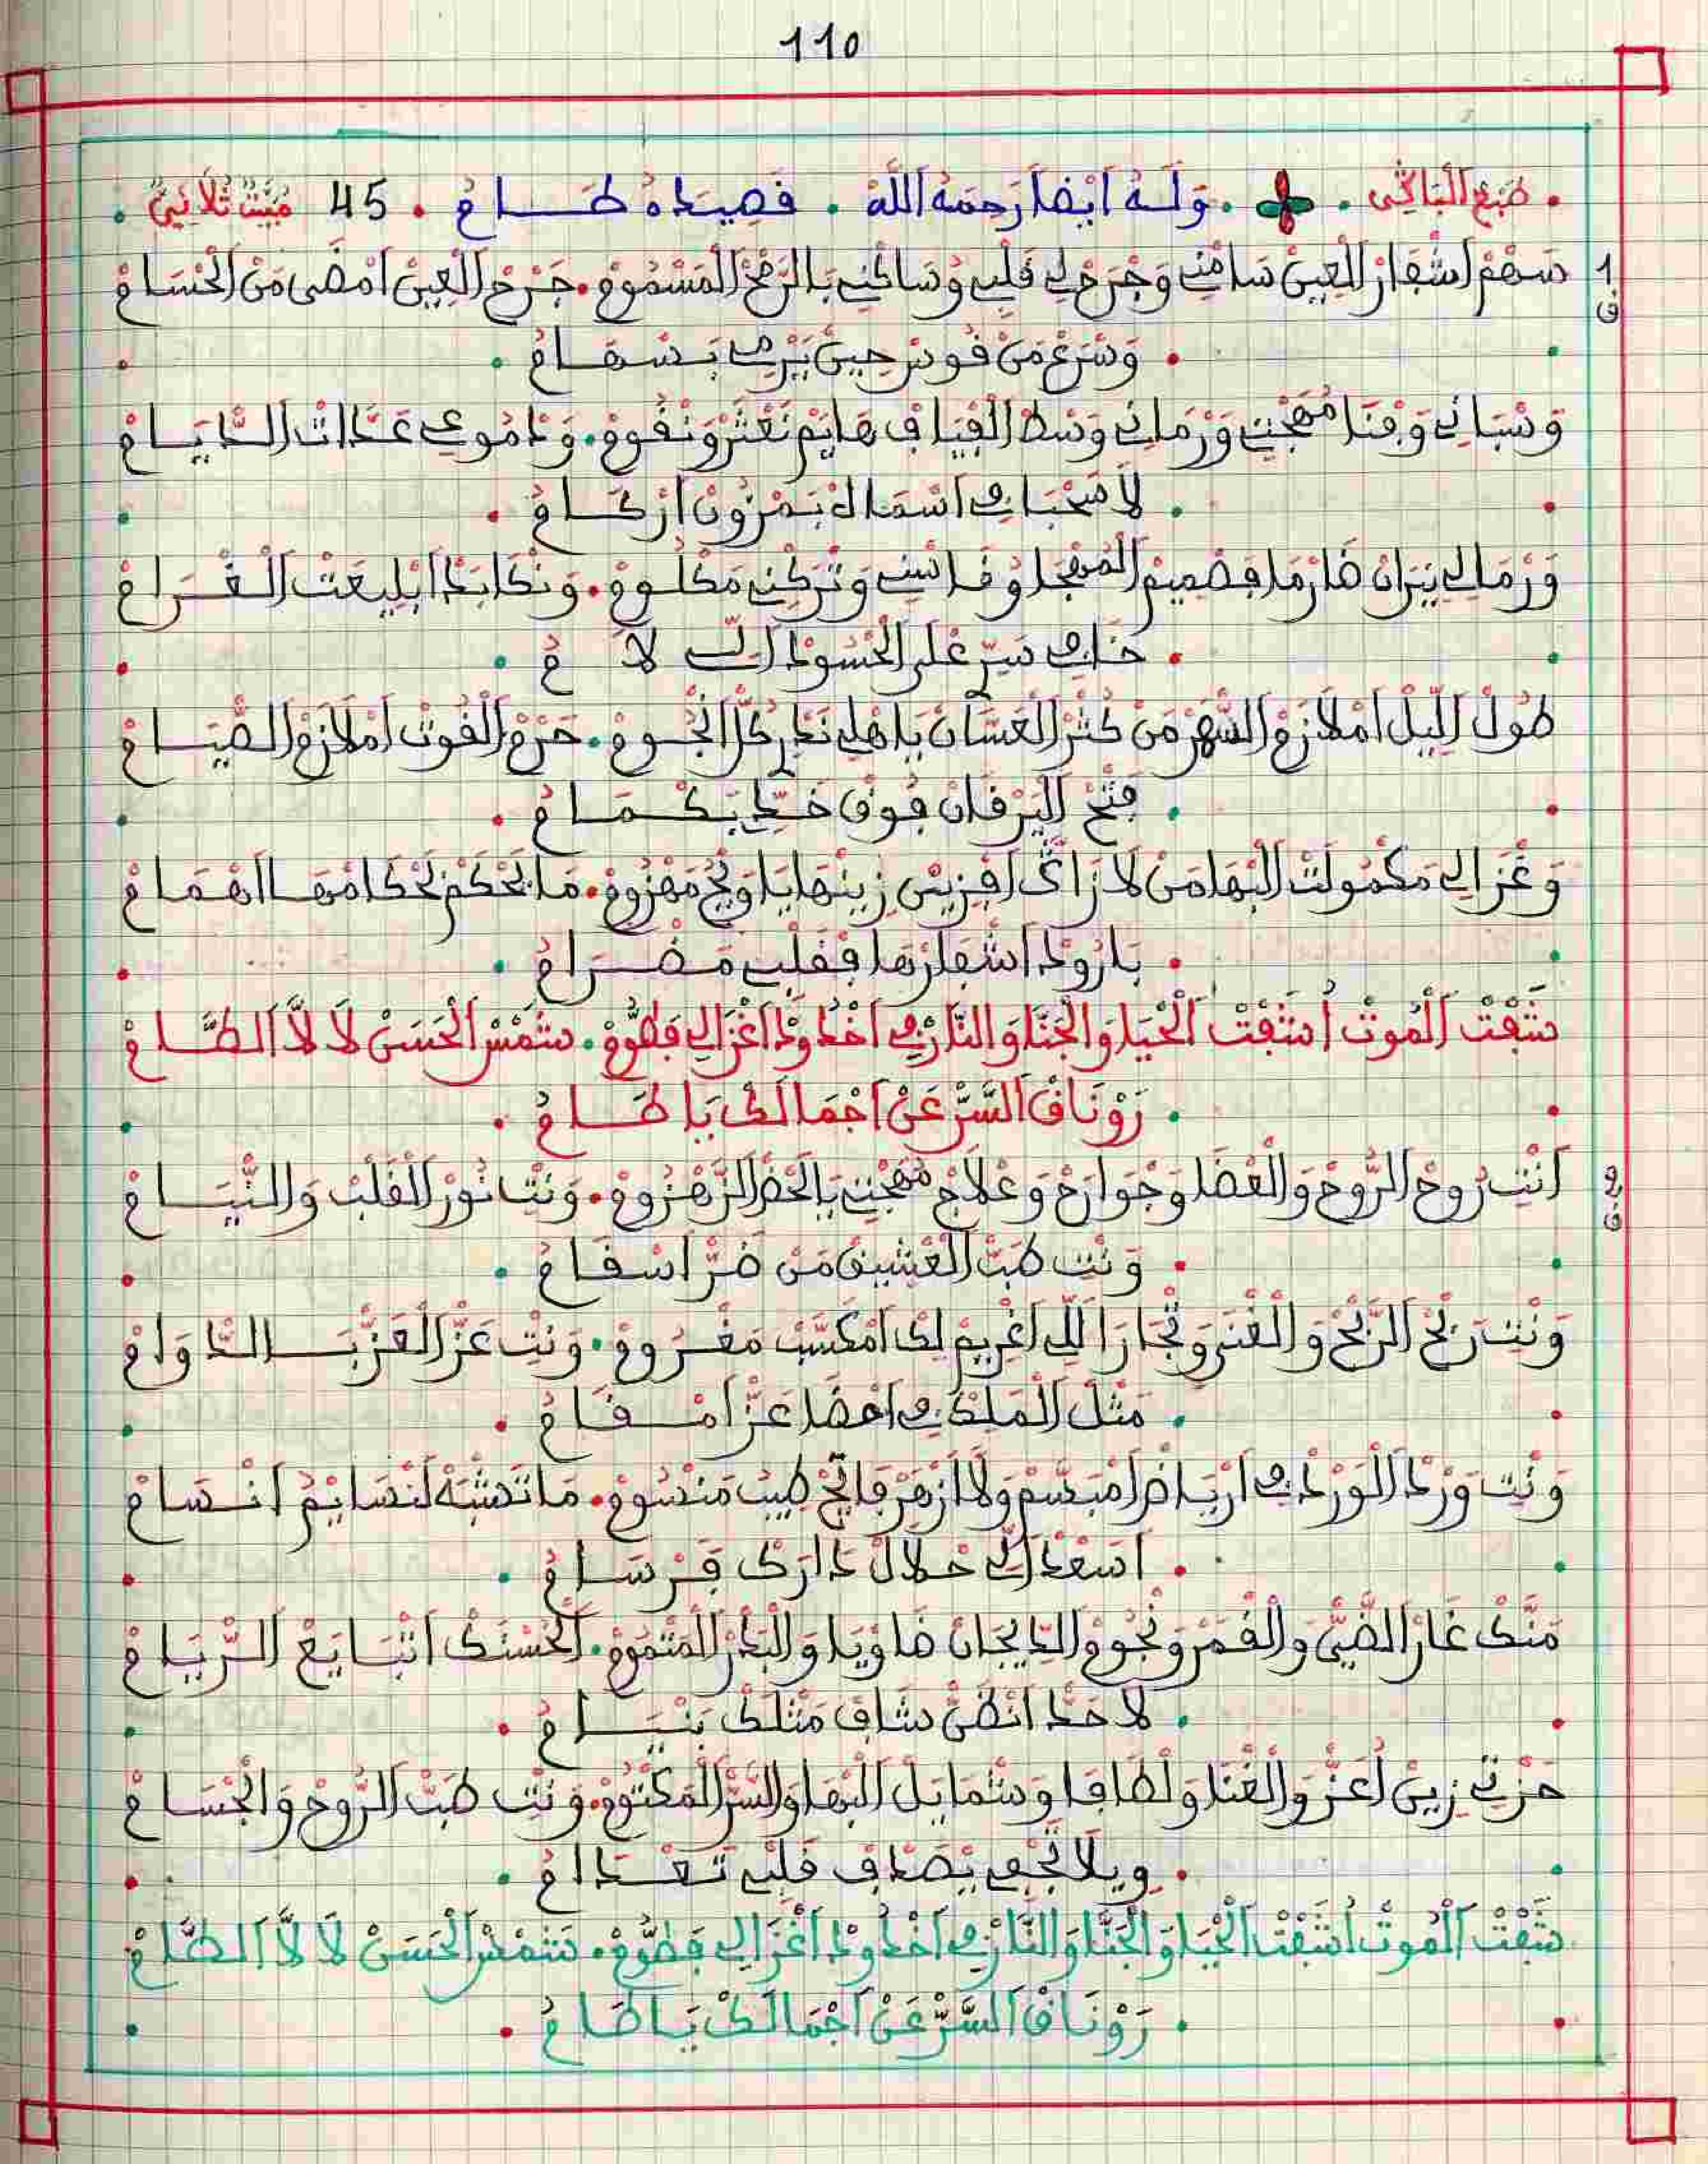 110
. طبع الباكي . . وله أيضا رحمه الله . قصيدة طام . 45 مبيت ثلاثي .
1 سهم اشفار العين سامني وجرح لي قلبي وساكني بالرمح المسموم . جرح العين امضى من الحسام
ق
. وسرع من قوس حين يرمي بسهام .
وسباني وفنا مهجتي ورماني وسط الفيافي هايم نعثر ونقوم . ودموعي عدات الديام
. لا صحبا في اسمال بمزون اركام .
ورمالي نيران ضارما فصميم المهجا وقاسني وتركني مكلوم . ونكابد ابليعت الغرام
. خافي سري على الحسود الي لام .
طول الليل املازم السهر من كثر العسان يا هلي ندرك النجوم . حرم القوت املازم الصيام
. فتح اليرقان فوق خدي بكمام .
وغزالي مكمولت البها من لا زاك افزين زينها يا ويح مهزوم . ما بحكم نحكامها اهمام
. بارود اشفارها فقلبي مضرام .
شفت الموت أشفت الحيا والجنا والنار في اخدود اغزالي فطوم . شمس الحسن لا لا الطام
. روناق السر عن اجمالك يا طام .
2 انت روح الروح والعضا وجوارح وعلاج مهجتي يا لحض الزهزوم . ونت نور القلب والنيام
ق
. ونت طب العشيق من ضر اسقام .
ونت ربح الربح والغنى وتجارا للي اغريم لك امكسب مغروم . ونت عز العز بالدوام
. مثل الملك في احضا عز امقام .
ونت ورد الورد في ارياض امبسم ولا ازهر فايح طيب منسوم . ما تشبه لنسايم انسام
. اسعد الي حلال دارك فرسام .
منك غار الضي والقمر ونجوم الديجان ضاويا والبدر المتموم . الحسنك اتبايع الريام
. لا حد انظن شاف مثلك بنيام .
حزتي زين أعز والغنا ولطافا وشمايل البها والسر المكتوم . ونت طب الروح والجسام
. ويلا تجفي يصدف قلبي تعدام .
شفت الموت أشفت الحيا والجنا والنار في اخدود اغزالي فطوم . شمس الحسن لا لا الطام
. روناق السر عن اجمالك يا طام .